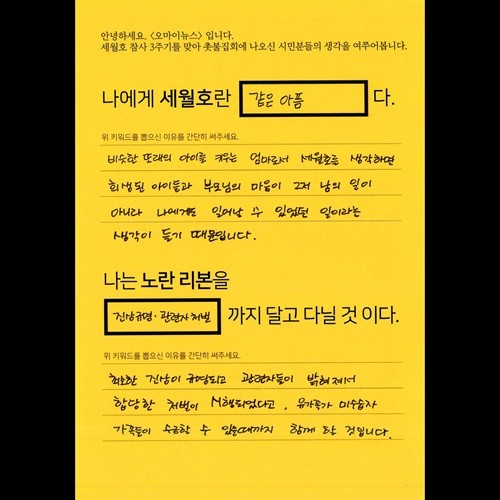 안녕하세요. <오마이뉴스> 입니다.
세월호 참사 3주기를 맞아 촛불집회에 나오신 시민분들의 생각을 여쭈어봅니다.
나에게 세월호란 같은 아픔 다.
위 키워드를 뽑으신 이유를 간단히 써주세요.
비슷한 또래의 아이를 키우는 엄마로서 세월호를 생각하면
희생된 아이들과 부모님의 마음이 그저 남의 일이
아니라 나에게도 일어날 수 있었던 일이라는
생각이 들기 때문입니다.
나는 노란 리본을
진상규명·관련자 처벌 까지 달고 다닐 것 이다.
위 키워드를 뽑으신 이유를 간단히 써주세요.
최소한 진상이 규명되고 관련자들이 밝혀져서
합당한 처벌이 시행되었다고, 유가족과 미수습자
가족들이 수긍할 수 있을때까지 함께 할 것입니다.